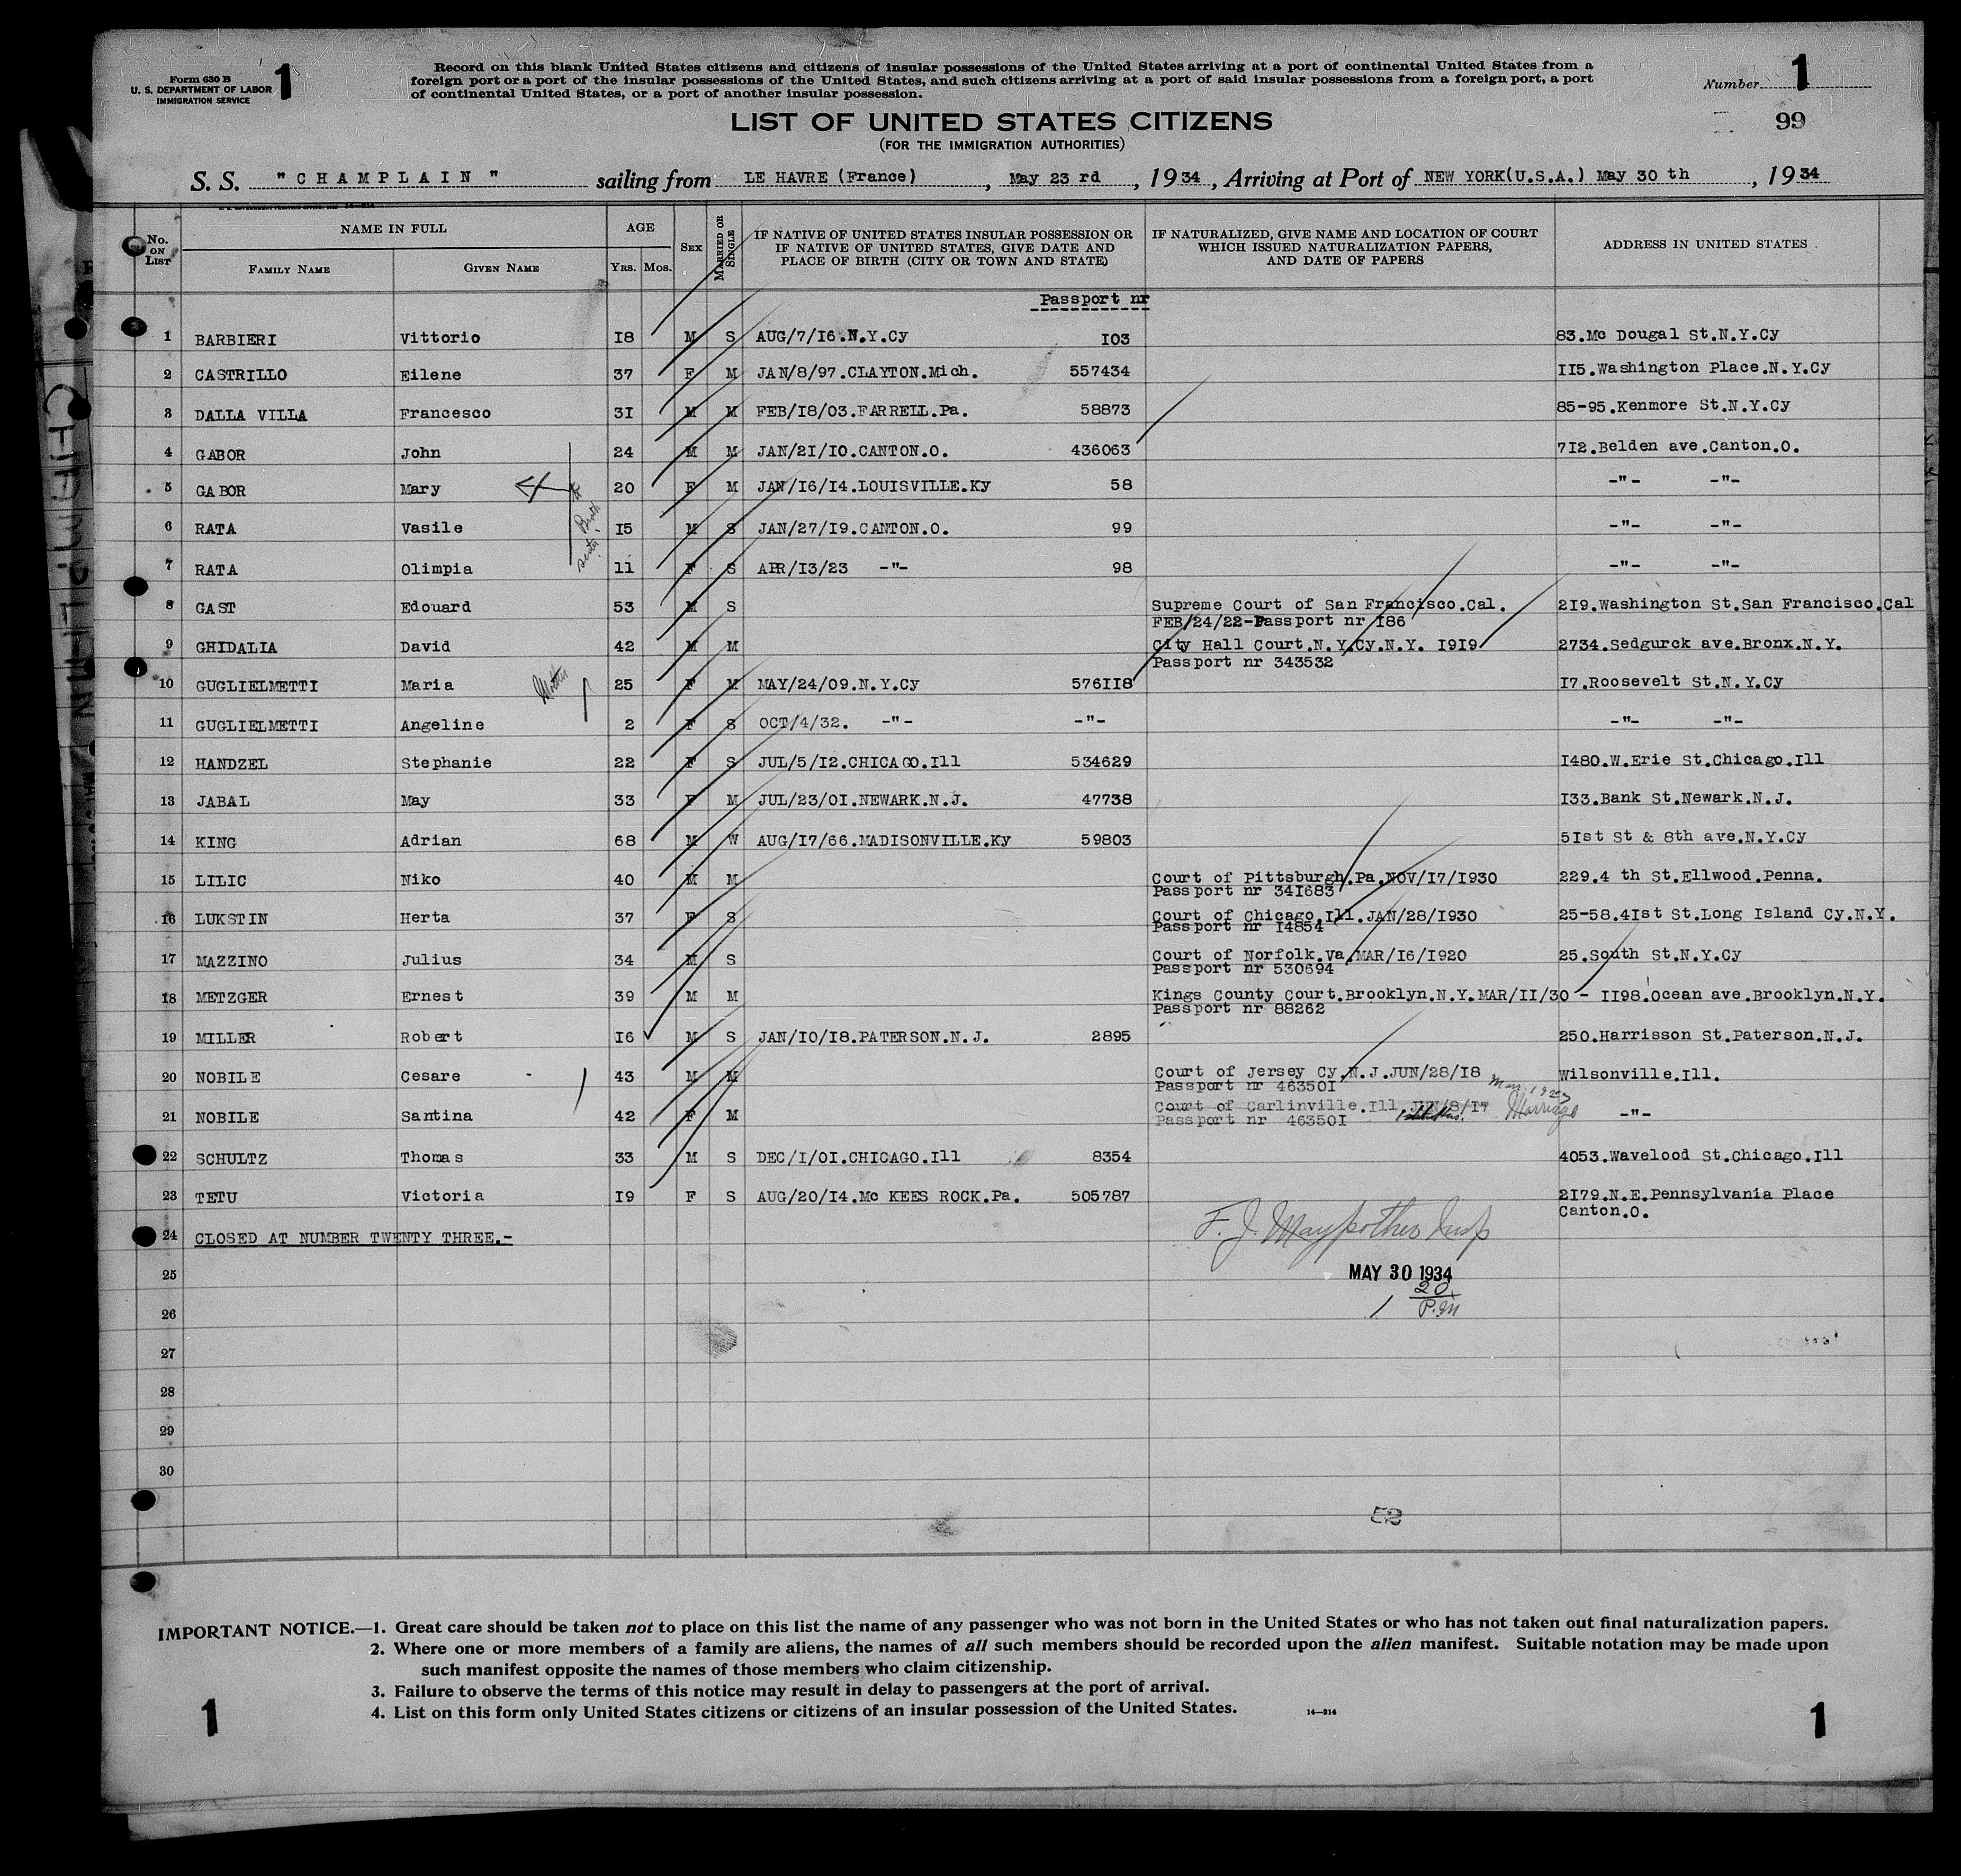 Form 630 B
U. S. DEPARTMENT OF LABOR
IMMIGRATION SERVICE
1
Record on this blank United States citizens and citizens of insular possessions of the United States arriving at a port of continental United States from a
foreign port or a port of the insular possessions of the United States, and such citizens arriving at a port of said insular possessions from a foreign port, a port
of continental United States, or a port of another insular possession.
Number 1
99
LIST OF UNITED STATES CITIZENS
(FOR THE IMMIGRATION AUTHORITIES)
S. S. "CHAMPLAIN" sailing from LE HAVRE (France), May 23 rd, 1934, Arriving at Port of NEW YORK(U.S.A.) May 30 th, 1934
No. ON LIST NAME IN FULL FAMILY NAME GIVEN NAME AGE YRS. MOS. SEX MARRIED OR SINGLE IF NATIVE OF UNITED STATES INSULAR POSSESSION OR IF NATIVE OF UNITED STATES, GIVE DATE AND PLACE OF BIRTH (CITY OR TOWN AND STATE) IF NATURALIZED, GIVE NAME AND LOCATION OF COURT WHICH ISSUED NATURALIZATION PAPERS, AND DATE OF PAPERS ADDRESS IN UNITED STATES
Passport nr
1 BARBIERI Vittorio I8 M S AUG/7/I6.N.Y.Cy I03 83.Mc Dougal St.N.Y.Cy
2 CASTRILLO Eilene 37 F M JAN/8/97.CLAYTON.Mich. 557434 II5.Washington Place.N.Y.Cy
3 DALLA VILLA Francesco 3I M M FEB/I8/03.FARRELL.Pa. 58873 85-95.Kenmore St.N.Y.Cy
4 GABOR John 24 M M JAN/2I/I0.CANTON.O. 436063 7I2.Belden ave.Canton.O.
5 GABOR Mary 20 F M JAN/I6/I4.LOUISVILLE.Ky 58 -"- -"-
6 RATA Vasile I5 M S JAN/27/I9.CANTON.O. 99 -"- -"-
7 RATA Olimpia 11 F S APR/I3/23 -"- 98 -"- -"-
8 GAST Edouard 53 M S Supreme Court of San Francisco.Cal. 2I9.Washington St.San Francisco.Cal
FEB/24/22-Passport nr I86
9 GHIDALIA David 42 M M City Hall Court.N.Y.Cy.N.Y. I9I9 2734.Sedgurck ave.Bronx.N.Y.
Passport nr 343532
Mother
10 GUGLIELMETTI Maria 25 F M MAY/24/09.N.Y.Cy 576II8 I7.Roosevelt St.N.Y.Cy
11 GUGLIELMETTI Angeline 2 F S OCT/4/32. -"- -"- -"- -"-
12 HANDZEL Stephanie 22 F S JUL/5/I2.CHICAGO.Ill 534629 I480.W.Erie St.Chicago.Ill
13 JABAL May 33 F M JUL/23/0I.NEWARK.N.J. 47738 I33.Bank St.Newark.N.J.
14 KING Adrian 68 M W AUG/I7/66.MADISONVILLE.Ky 59803 5Ist St & 8th ave.N.Y.Cy
15 LILIC Niko 40 M M Court of Pittsburgh.Pa.NOV/I7/I930 229.4 th St.Ellwood.Penna.
Passport nr 34I683
16 LUKSTIN Herta 37 F S Court of Chicago.Ill.JAN/28/I930 25-58.4Ist St.Long Island Cy.N.Y.
Passport nr I4854
17 MAZZINO Julius 34 M S Court of Norfolk.Va.MAR/I6/I920 25.South St.N.Y.Cy
Passport nr 530694
18 METZGER Ernest 39 M M Kings County Court.Brooklyn.N.Y.MAR/II/30 - II98.Ocean ave.Brooklyn.N.Y.
Passport nr 88262
19 MILLER Robert I6 M S JAN/I0/I8.PATERSON.N.J. 2895 250.Harrisson St.Paterson.N.J.
20 NOBILE Cesare 43 M M Court of Jersey Cy.N.J.JUN/28/I8 Wilsonville.Ill.
Passport nr 46350I
21 NOBILE Santina 42 F M Court of Carlinville.Ill JUN/8/I7 Marriage -"-
Passport nr 46350I
22 SCHULTZ Thomas 33 M S DEC/I/0I.CHICAGO.Ill 8354 4053.Wavelood St.Chicago.Ill
23 TETU Victoria I9 F S AUG/20/I4.Mc KEES ROCK.Pa. 505787 2I79.N.E.Pennsylvania Place
Canton.O.
24 CLOSED AT NUMBER TWENTY THREE.-
25
MAY 30 1934
1 20 P.M
26
27
28
29
30
52
IMPORTANT NOTICE.—1. Great care should be taken not to place on this list the name of any passenger who was not born in the United States or who has not taken out final naturalization papers.
2. Where one or more members of a family are aliens, the names of all such members should be recorded upon the alien manifest. Suitable notation may be made upon
such manifest opposite the names of those members who claim citizenship.
3. Failure to observe the terms of this notice may result in delay to passengers at the port of arrival.
4. List on this form only United States citizens or citizens of an insular possession of the United States.
14—214
1
1